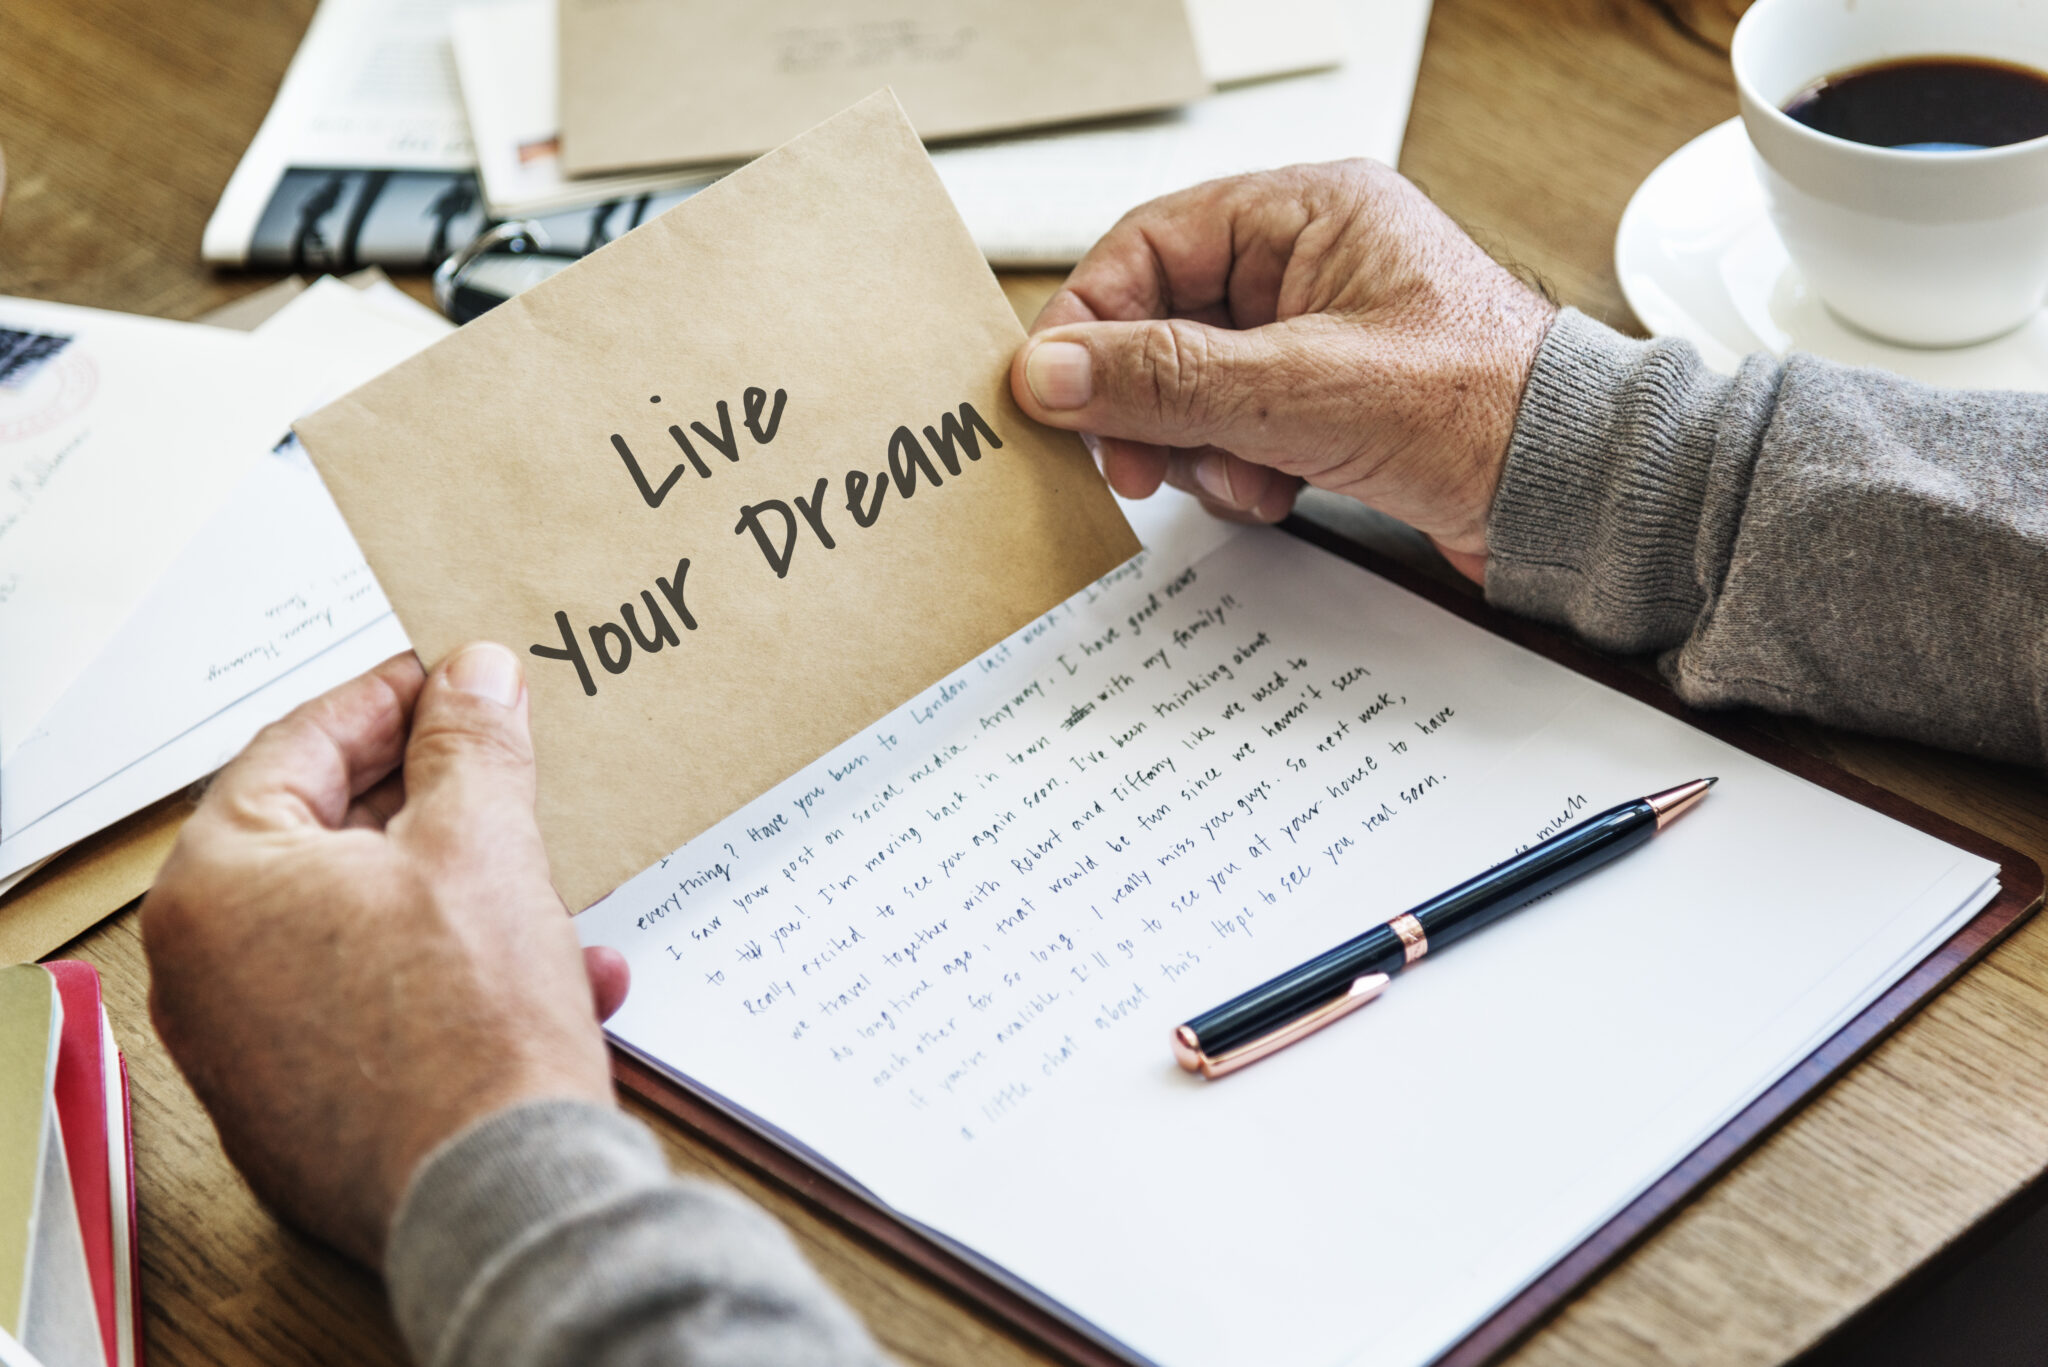 Live
Your Dream
everything? Have you been to London last week! I though
I saw your post on social media. Anyway, I have good news
to tell you! I'm moving back in town with my family!!
Really excited to see you again soon. I've been thinking about
we travel together with Robert and Tiffany like we used to
do longtime ago, that would be fun since we haven't seen
each other for so long. I really miss you guys. So next week,
if you're avalible, I'll go to see you at your house to have
a little chat about this. Hope to see you real soon.
so much